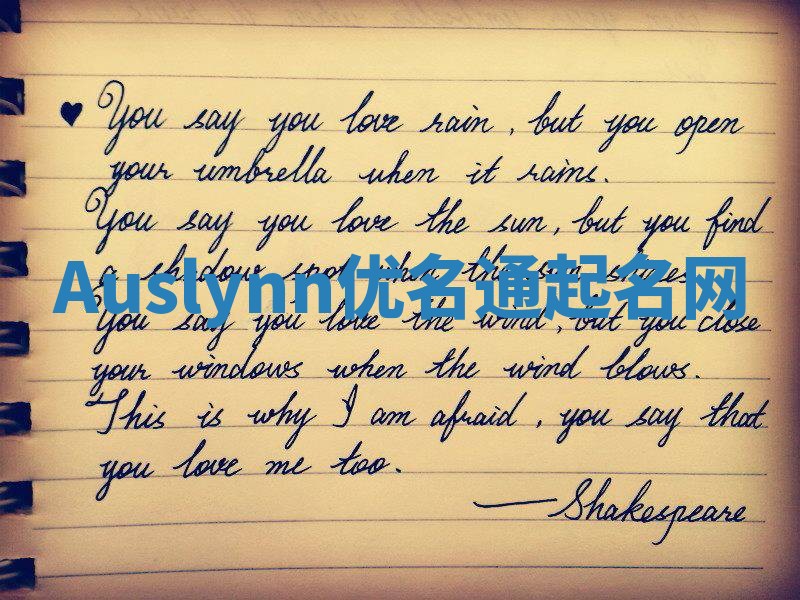 You say you love rain, but you open
your umbrella when it rains.
You say you love the sun, but you find
a shadow spot when the sun shines.
Auslynn优名通起名网
You say you love the wind, but you close
your windows when the wind blows.
This is why I am afraid, you say that
you love me too.
—Shakespeare